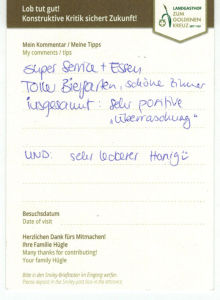 Lob tut gut!
Konstruktive Kritik sichert Zukunft!
LANDGASTHOF
ZUM
GOLDENEN
KREUZ
Mein Kommentar / Meine Tipps
My comments / tips
Super Service + Essen,
Toller Biergarten, schöne Zimmer
insgesamt: sehr positive
"Überraschung"
UND: sehr leckerer Honig
Besuchsdatum
Date of visit
Herzlichen Dank fürs Mitmachen!
Ihre Familie Hügle
Many thanks for contributing!
Your family Hügle
Bitte in den Smiley-Briefkasten im Eingang werfen.
Please deposit in the Smiley post box in the entrance.